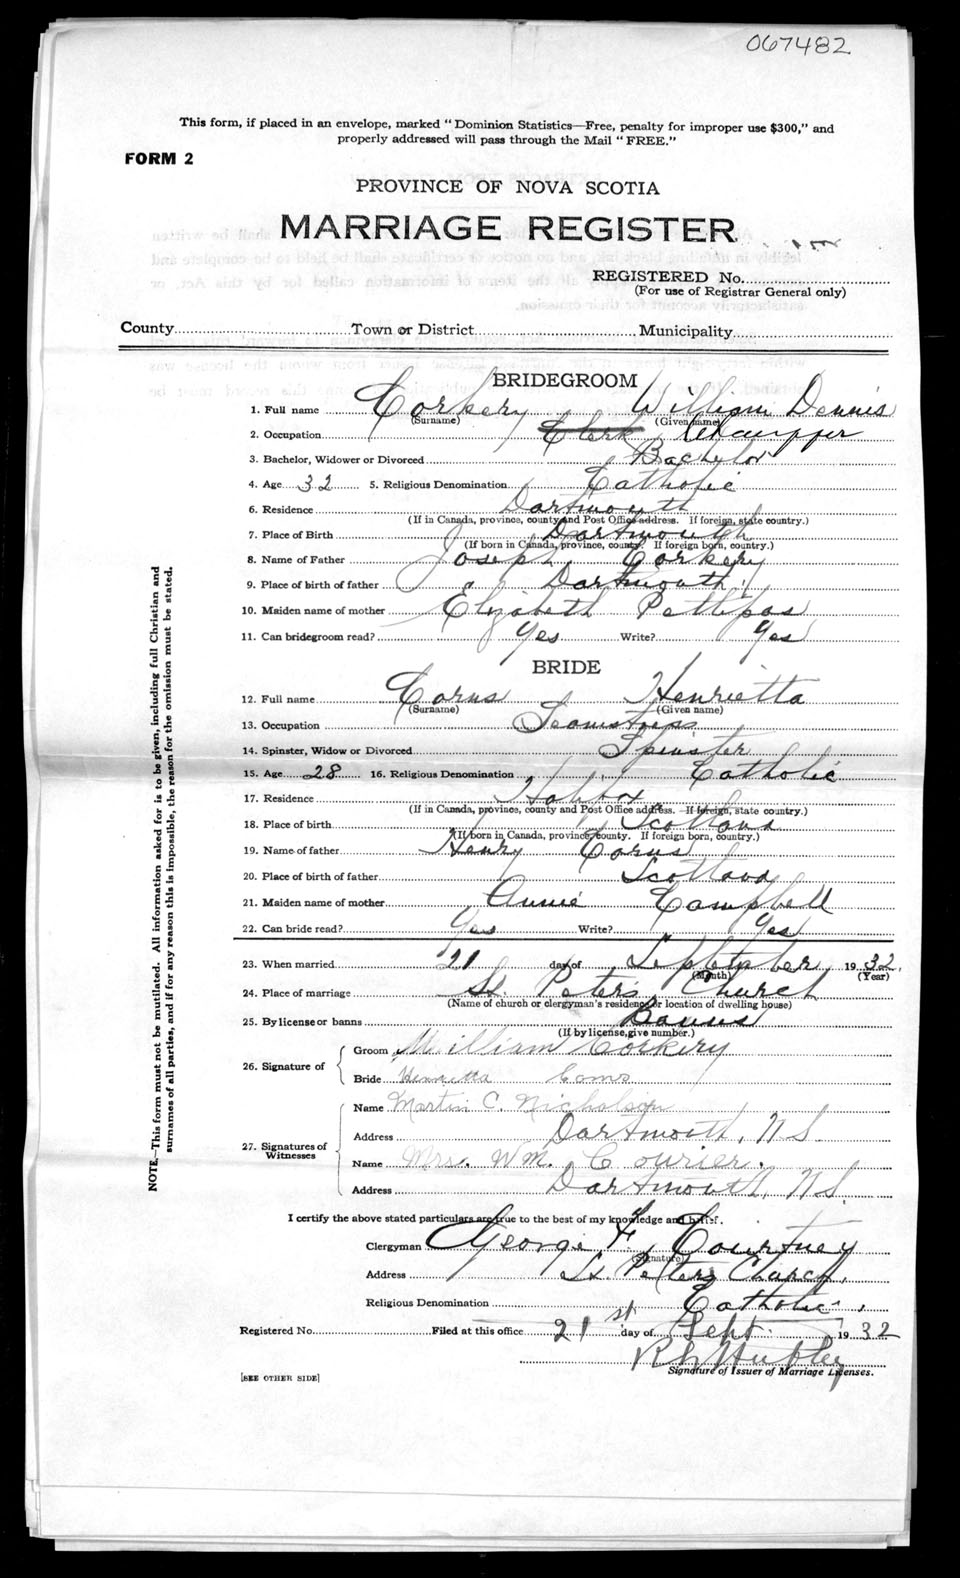 067482
This form, if placed in an envelope, marked "Dominion Statistics—Free, penalty for improper use $300," and
properly addressed will pass through the Mail "FREE."
FORM 2
PROVINCE OF NOVA SCOTIA
MARRIAGE REGISTER
REGISTERED No.
(For use of Registrar General only)
County Town or District Municipality
BRIDEGROOM
1. Full name Corkery William Dennis
(Surname) (Given name)
2. Occupation Clerk Chauffer
3. Bachelor, Widower or Divorced Bachelor
4. Age 32 5. Religious Denomination Catholic
6. Residence Dartmouth
(If in Canada, province, county and Post Office address. If foreign, state country.)
7. Place of Birth Dartmouth
(If born in Canada, province, county. If foreign born, country.)
8. Name of Father Joseph Corkery
9. Place of birth of father Dartmouth
10. Maiden name of mother Elizabeth Pettipas
11. Can bridegroom read? Yes Write? Yes
BRIDE
12. Full name Corns Henrietta
(Surname) (Given name)
13. Occupation Seamstress
14. Spinster, Widow or Divorced Spinster
15. Age 28 16. Religious Denomination Catholic
17. Residence Halifax
(If in Canada, province, county and Post Office address. If foreign, state country.)
18. Place of birth Scotland
(If born in Canada, province, county. If foreign born, country.)
19. Name of father Henry Corns
20. Place of birth of father Scotland
21. Maiden name of mother Annie Campbell
22. Can bride read? Yes Write? Yes
23. When married 21 day of September 1932.
(Month) (Year)
24. Place of marriage St. Peter's Church
(Name of church or clergyman's residence or location of dwelling house)
25. By license or banns Banns
(If by license, give number.)
26. Signature of
Groom William Corkery
Bride Henrietta Corns
27. Signatures of Witnesses
Name Martin C. Nicholson
Address Dartmouth, N.S.
Name Mrs. Wm. Courier.
Address Dartmouth, N.S.
I certify the above stated particulars are true to the best of my knowledge and belief.
Clergyman George F. Courtney
(Signature)
Address St. Peters Church,
Religious Denomination Catholic.
Registered No. Filed at this office 21st day of Sept. 1932
Signature of Issuer of Marriage Licenses.
[SEE OTHER SIDE]
NOTE.—This form must not be mutilated. All information asked for is to be given, including full Christian and
surnames of all parties, and if for any reason this is impossible, the reason for the omission must be stated.